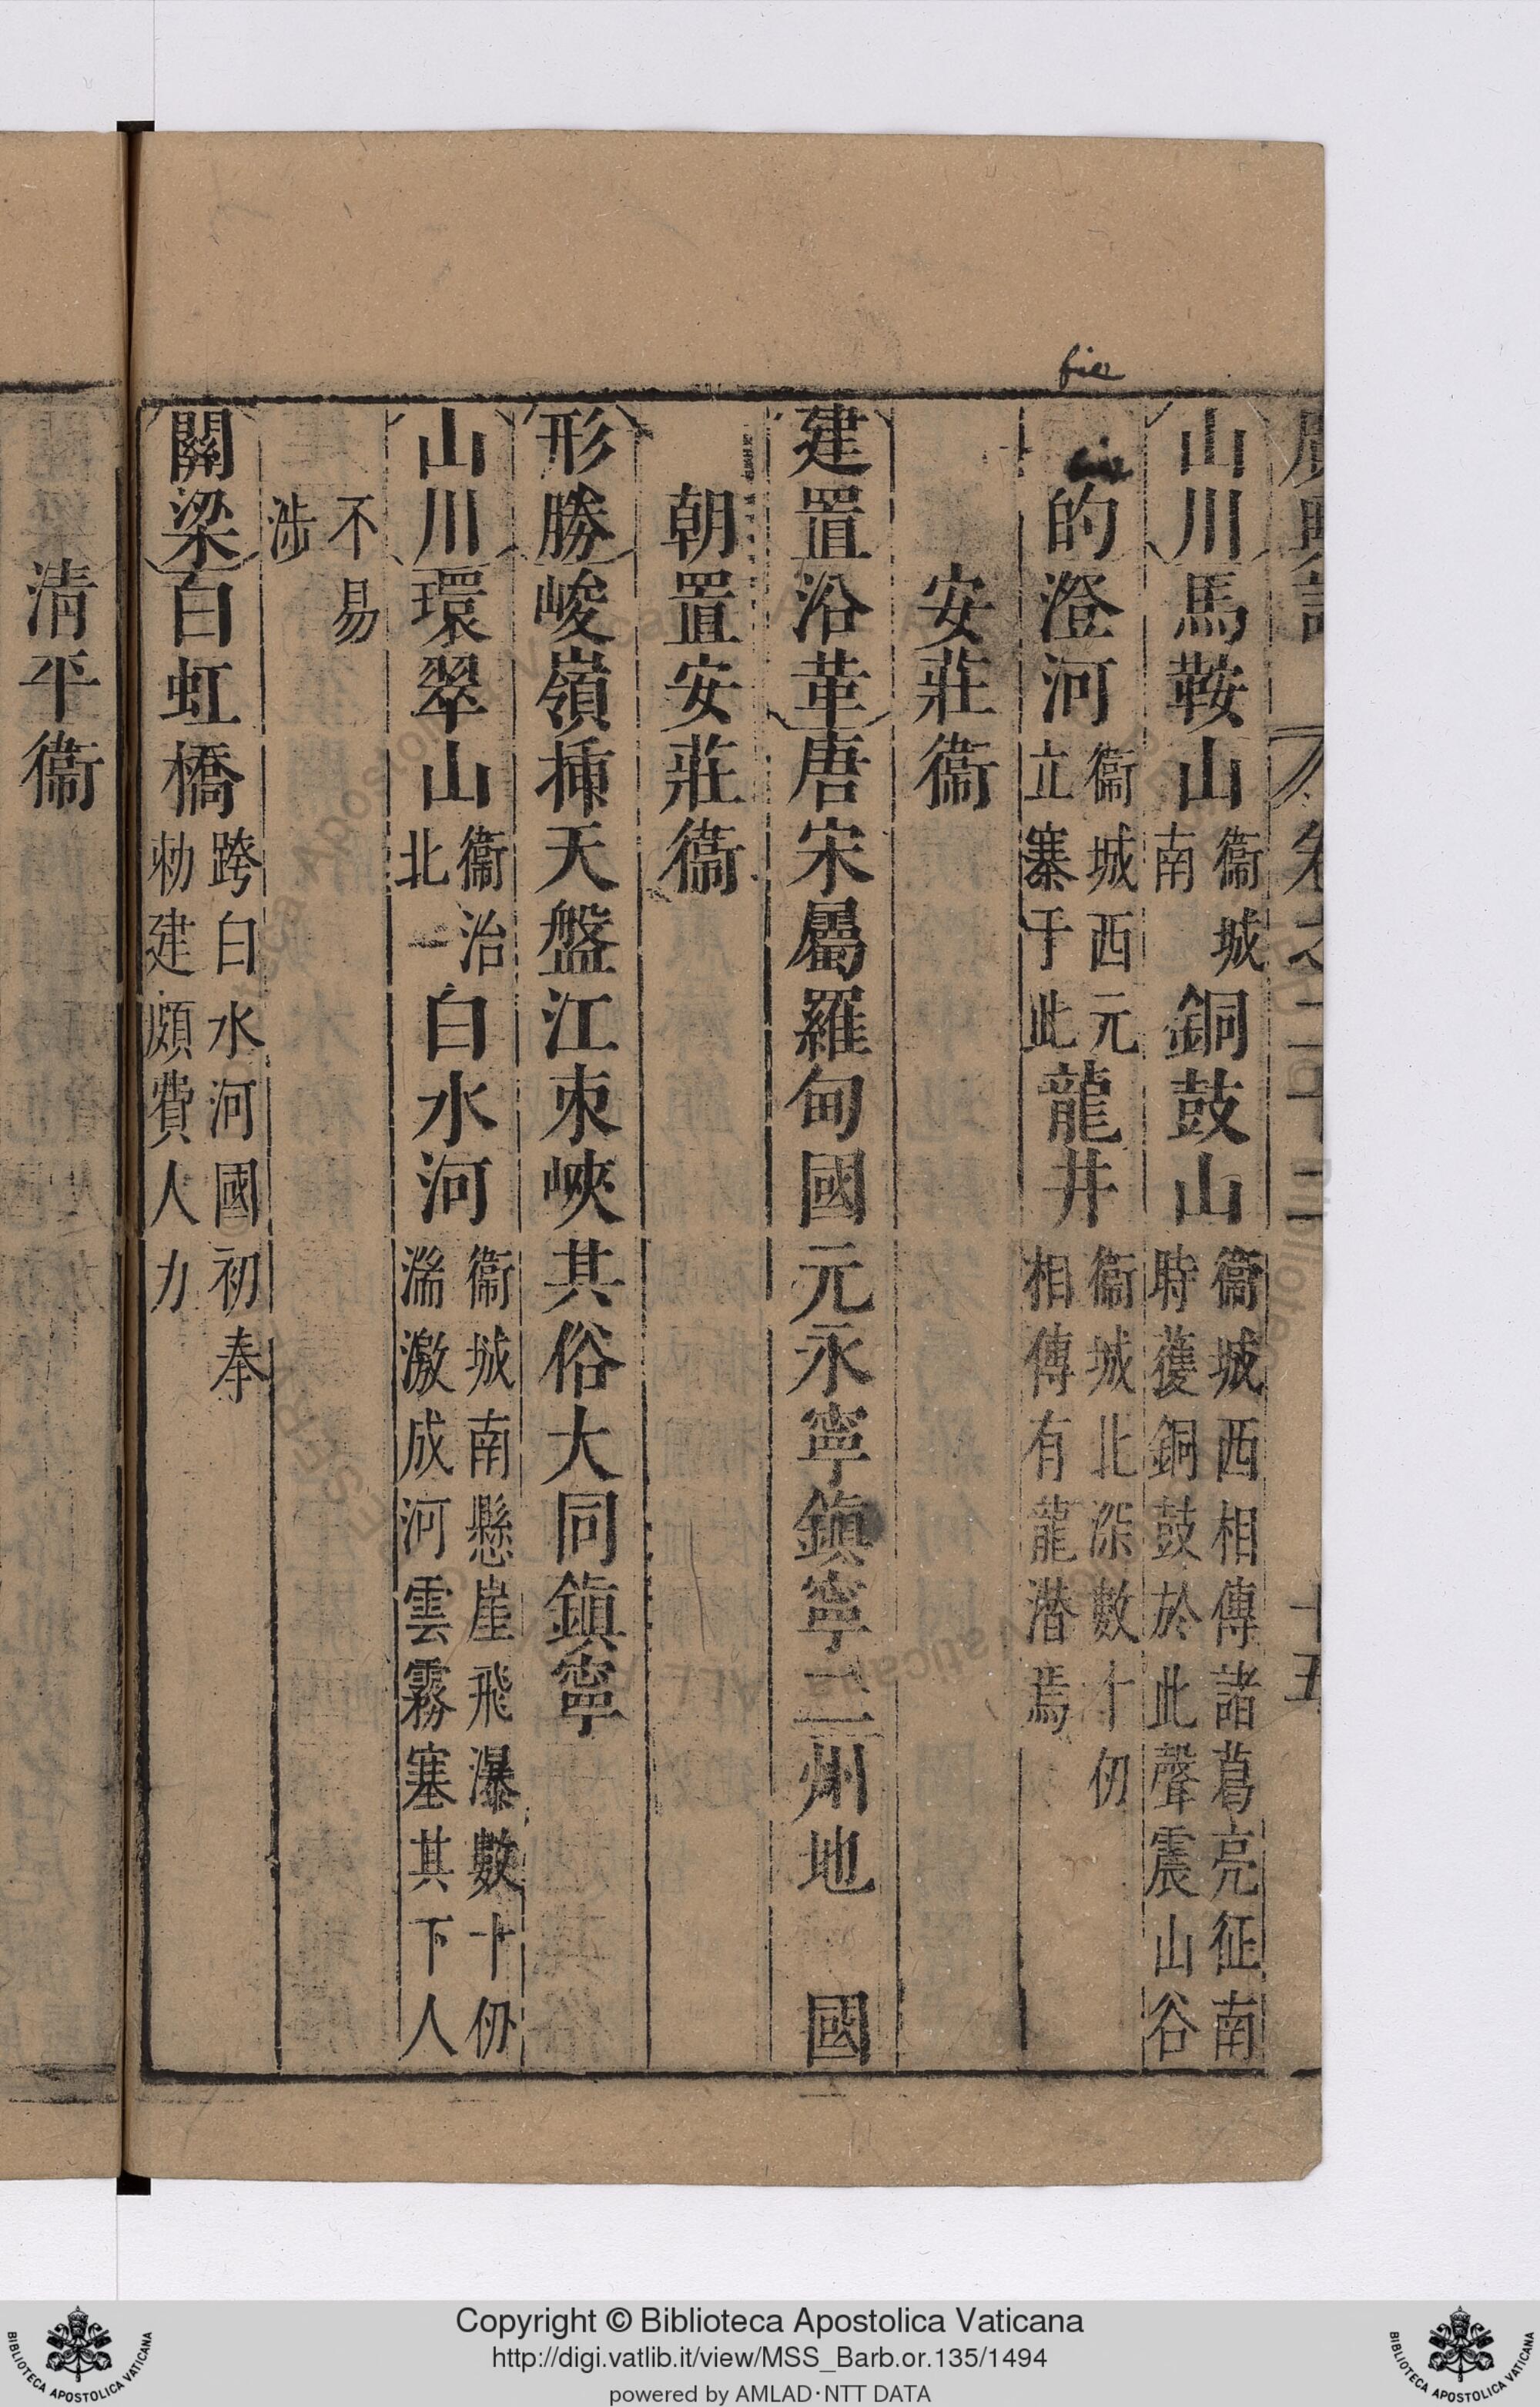 fie
山川馬鞍山衞城南銅鼓山衞城西相傳諸葛亮征南時獲銅鼓於此聲震山谷
的澄河衞城西元立寨于此龍井衞城北深數十仞相傳有龍潛焉
安莊衞
建置沿革唐宋屬羅甸國元永寧鎮寧二州地 國
朝置安莊衞
形勝峻嶺揷天盤江束峽其俗大同鎮寧
山川環翠山衞治北一白水河衞城南懸崖飛瀑數十仞湍激成河雲霧塞其下人
不易涉
關梁白虹橋跨白水河國初奉勑建頗費人力
清平衞
Copyright © Biblioteca Apostolica Vaticana
http://digi.vatlib.it/view/MSS_Barb.or.135/1494
powered by AMLAD·NTT DATA
BIBLIOTECA APOSTOLICA VATICANA
BIBLIOTECA APOSTOLICA VATICANA